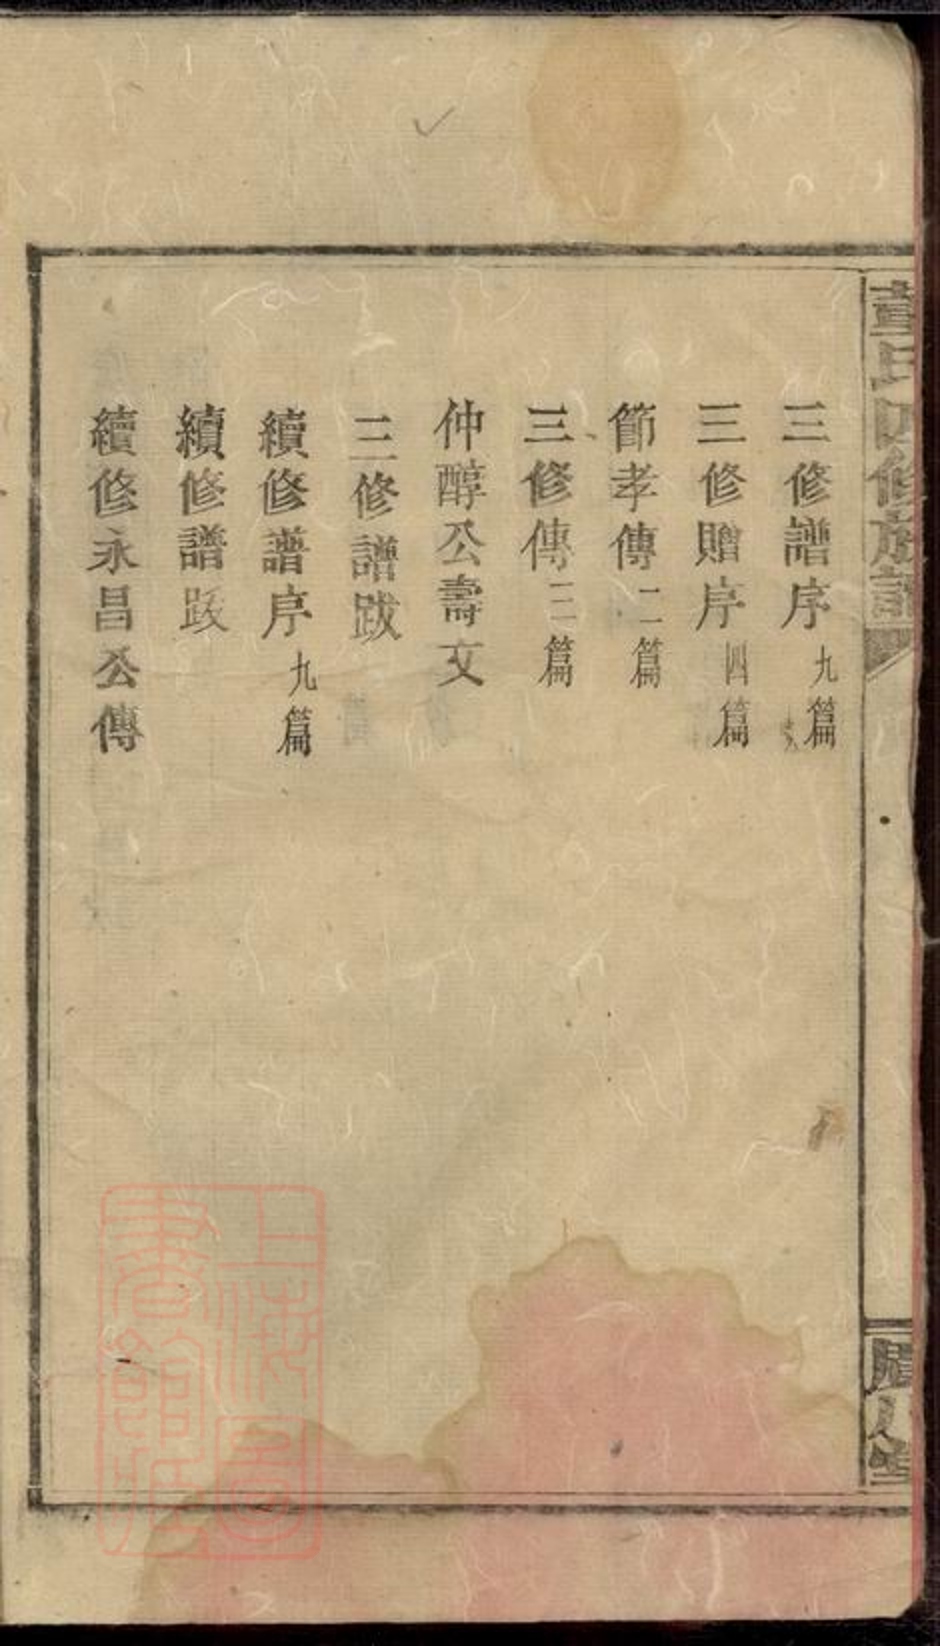 三修譜序九篇
三修贈序四篇
節孝傳二篇
三修傳三篇
仲醇公壽文
三修譜跋
續修譜序九篇
續修譜跋
續修永昌公傳
氏四修族譜
堂
上海圖
書館藏